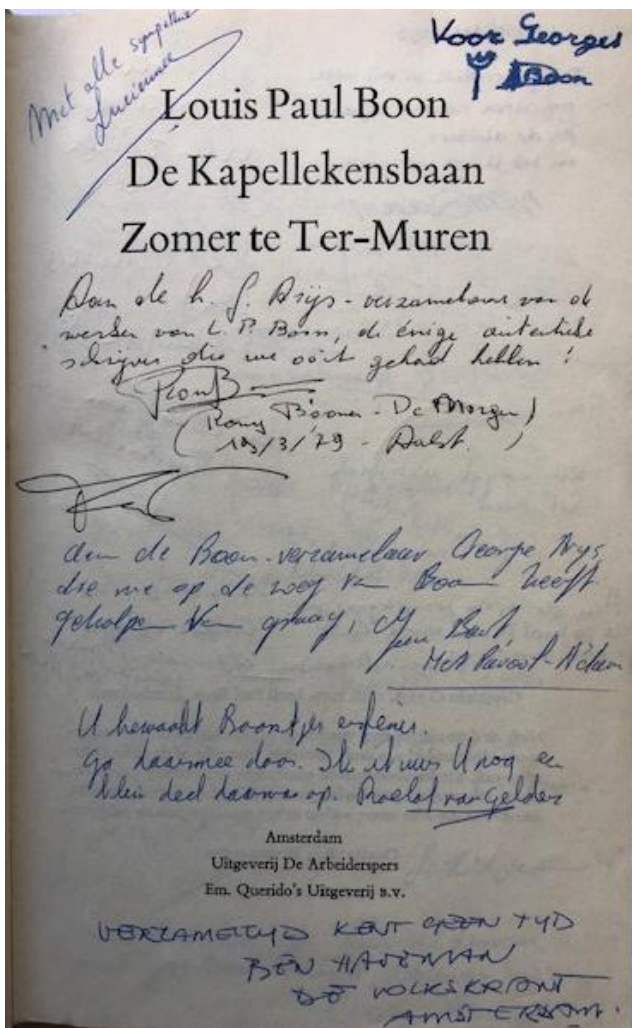 Met alle sympathie
Lucienne
Voor Georges
Boon
Louis Paul Boon
De Kapellekensbaan
Zomer te Ter-Muren
Aan de h. G. Arijs - verzamelaar van de
werken van L. P. Boon, de énige autentieke
schrijver die we ooit gehad hebben !
(Romy Boonen - De Morgen)
19/3/79 - Aalst.
Aan de Boon-verzamelaar George Arys
die me op de weg van Boon heeft
geholpen Van
Met
U bewaart Boontjes erfenis.
Ga daarmee door. Ik stuur U nog een
klein deel daarvan op. Roelof van Gelder
Amsterdam
Uitgeverij De Arbeiderspers
Em. Querido's Uitgeverij B.V.
VERZAMELTYD KENT GEEN TYD
BEN HAVEMAN
DE VOLKSKRANT
AMSTERDAM.